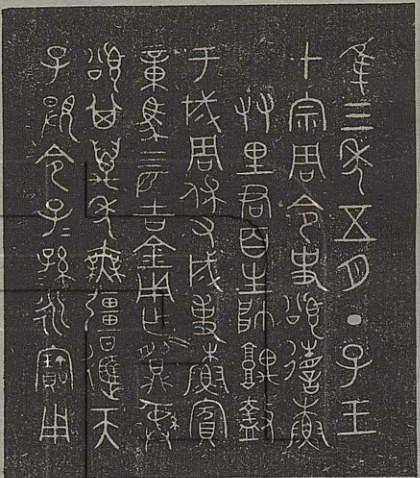 隹三年五月丁子王
才宗周令史頌省蘇
友里君百生帥盩
于成周休又成事蘇賓
章馬四匹吉金用乍彝
頌其萬年無疆日天
子令子=孫永寶用